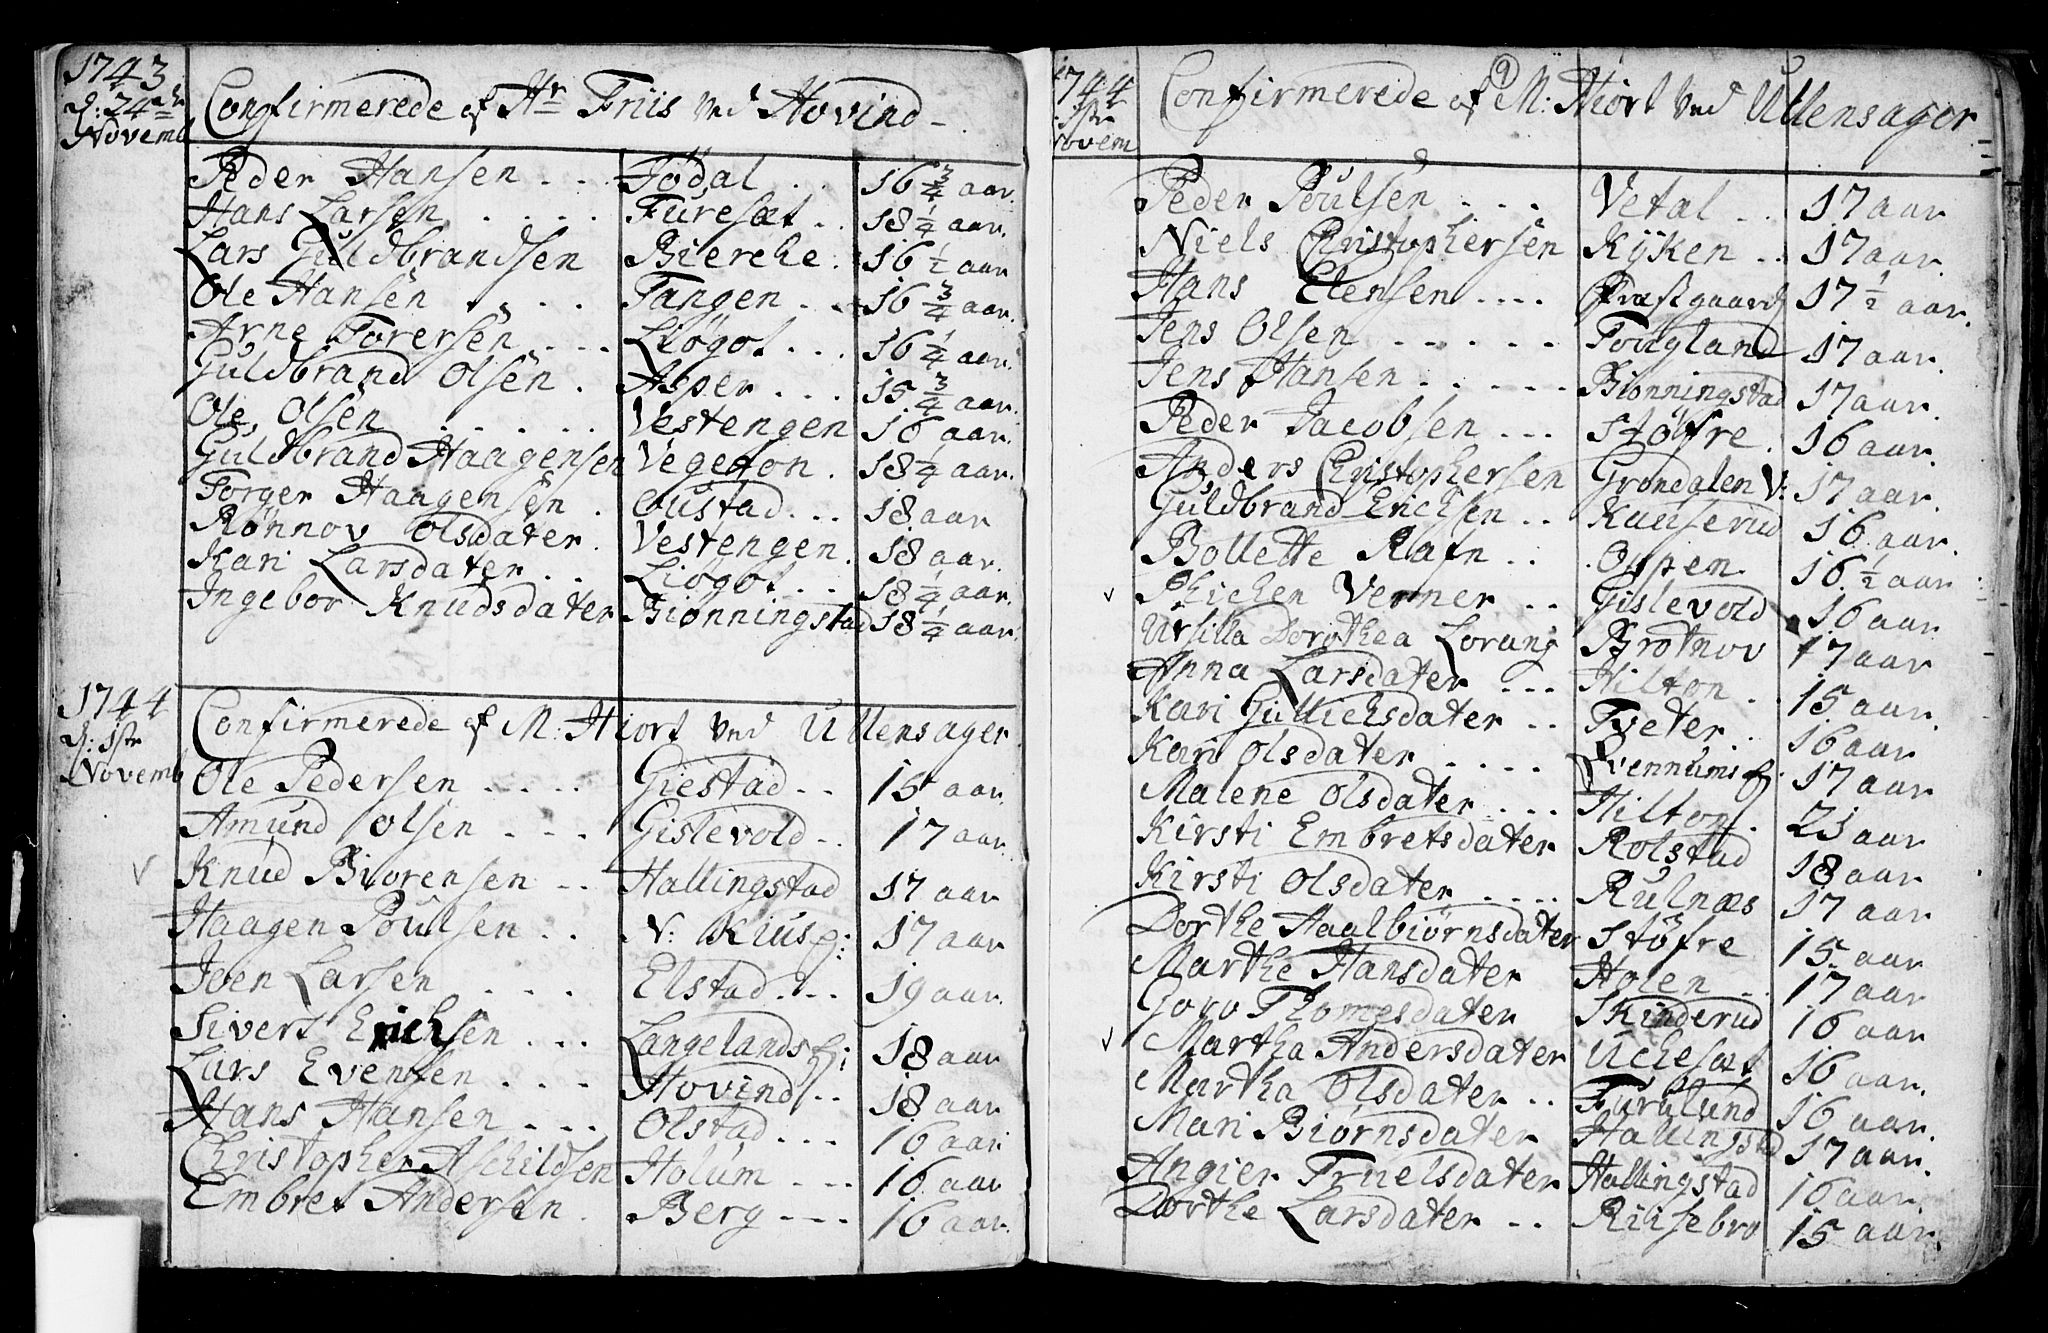 1743
d: 24de
Novemb
Confirmerede af Hr Friis ved Hovind
Peder Hansen Fødal 16 3/4 aar.
Hans Larsen Furesæt 18 1/4 aar.
Lars Guldbrandsen Bierche 16 1/2 aar
Ole Hansen Tangen 16 3/4 aar.
Arne Torersen Liøgot 16 1/4 aar.
Guldbrand Olsen Asper 15 3/4 aar.
Ole Olsen Vestengen 16 aar.
Guldbrand Haagensen 18 1/4 aar.
Torger Haagensen Oustad 18 aar
Rønnov Olsdater Vestengen 18 aar.
Kari Larsdater Liøgot 18 1/4 aar.
Ingebor Knudsdater Biønningstad 18 1/4 aar.
1744
d: 1ste
Novemb
Confirmerede af M: Hiort ved Ullensager
Ole Pedersen Giestad 15 aar.
Amund Olsen Gislevold 17 aar.
Knud Biørensen Hallingstad 17 aar
Haagen Poulsen N: Kius 17 aar
Joen Larsen Elstad 19 aar.
Sivert Erichsen Langelands 18 aar
Lars Evensen Hovind 18 aar
Hans Hansen Olstad 16 aar
Christopher Aschildsen Holum 16 aar
Embret Andersen Berg 16 aar.
9
1744
1ste
Novem
Confirmerede af M: Hiort ved Ullensager
Peder Poulsen Vetal 17 aar
Niels Christophersen Kyken 17 aar.
Hans Elensen Præstgaard 17 1/2 aar.
Jens Olsen Fougland 17 aar.
Jens Hansen Biønningstad 17 aar.
Peder Jacobsen Støfre 16 aar.
Anders Christophersen Grøndalen V: 17 aar.
Guldbrand Erichsen Kauserud 16 aar.
Bollette Rafn Oppen 16 1/2 aar
Verner Gislevold 16 aar
Ursilla Dorothea Lorang Brotnov 17 aar
Anna Larsdater Hilton 15 aar.
Kari Gullichsdater Tveter 16 aar
Kari Olsdater 17 aar
Malene Olsdater Hilton 21 aar
Kirsti Embretsdater Rolstad 18 aar
Kirsti Olsdater Rulnæs 17 aar
Dorthe Haalbiørnsdater Støfre 15 aar
Marthe Hansdater Holen 17 aar
Goro Thomesdater Skinderud 16 aar
Martha Andersdater Uchesæt 16 aar.
Martha Olsdater Furulund 16 aar.
Mari Biørnsdater Hallingstad 17 aar.
Angier Truelsdater Hallingstad 16 aar
Dorthe Larsdater Riisebro 15 aar.